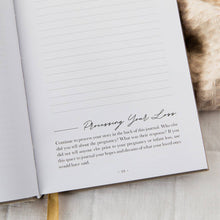 Processing Your Loss
Continue to process your story in the back of this journal. Who else
did you tell about the pregnancy? What was their response? If you
did not tell anyone else prior to your pregnancy or infant loss, use
this space to journal your hopes and dreams of what your loved ones
would have said.